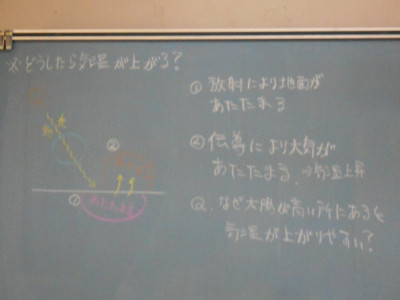 ※どうしたら気温が上がる?
①放射により地面が
あたたまる
②伝導により大気が
あたたまる ⇒気温上昇
Q.なぜ太陽が高い所にあると
気温が上がりやすい?
②
①
あたたまる